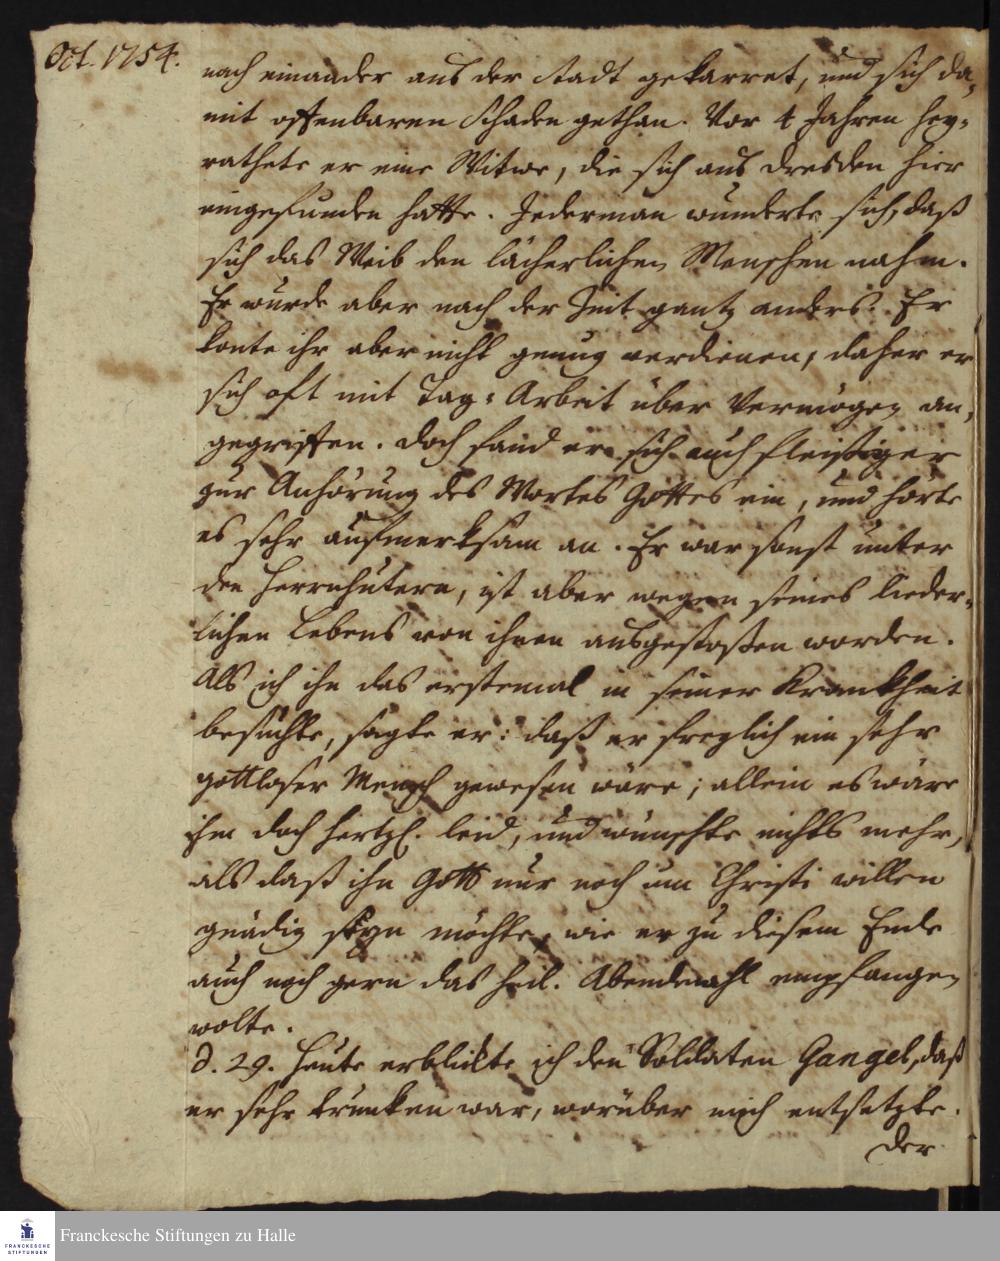 Oct. 1754.
nach einander aus der Stadt gekarret, und sich da-
mit offenbaren Schaden gethan. Vor 4 Jahren hey-
rathete er eine Witwe, die sich aus Dresden hier
eingefunden hatte. Jederman wunderte sich, daß
sich das Weib den lächerlichen Menschen nahm.
Er wurde aber nach der Zeit gantz anders. Er
konte ihr aber nicht genug verdienen, daher er
sich oft mit Tag-Arbeit über Vermögen an-
gegriffen. Doch fand er sich auch fleißiger
zur Anhörung des Wortes Gottes ein, und hörte
es sehr aufmerksam an. Er war sonst unter
den Herrnhutern, ist aber wegen seines lieder-
lichen Lebens von ihnen ausgestoßen worden.
Als ich ihn das erstemal in seiner Kranckheit
besuchte, sagte er: daß er freylich ein sehr
gottloser Mensch gewesen wäre; allein es wäre
ihm doch hertzl. leid, und wünschte nichts mehr,
als daß ihn Gott nur noch um Christi willen
gnädig seyn möchte, wie er zu diesem Ende
auch noch gern das heil. Abendmahl empfangen
wolte.
d. 29. Heute erblickte ich den Soldaten Gangel, daß
er sehr trunken war, worüber mich entsetzte.
Der
Franckesche Stiftungen zu Halle
FRANCKESCHE
STIFTUNGEN